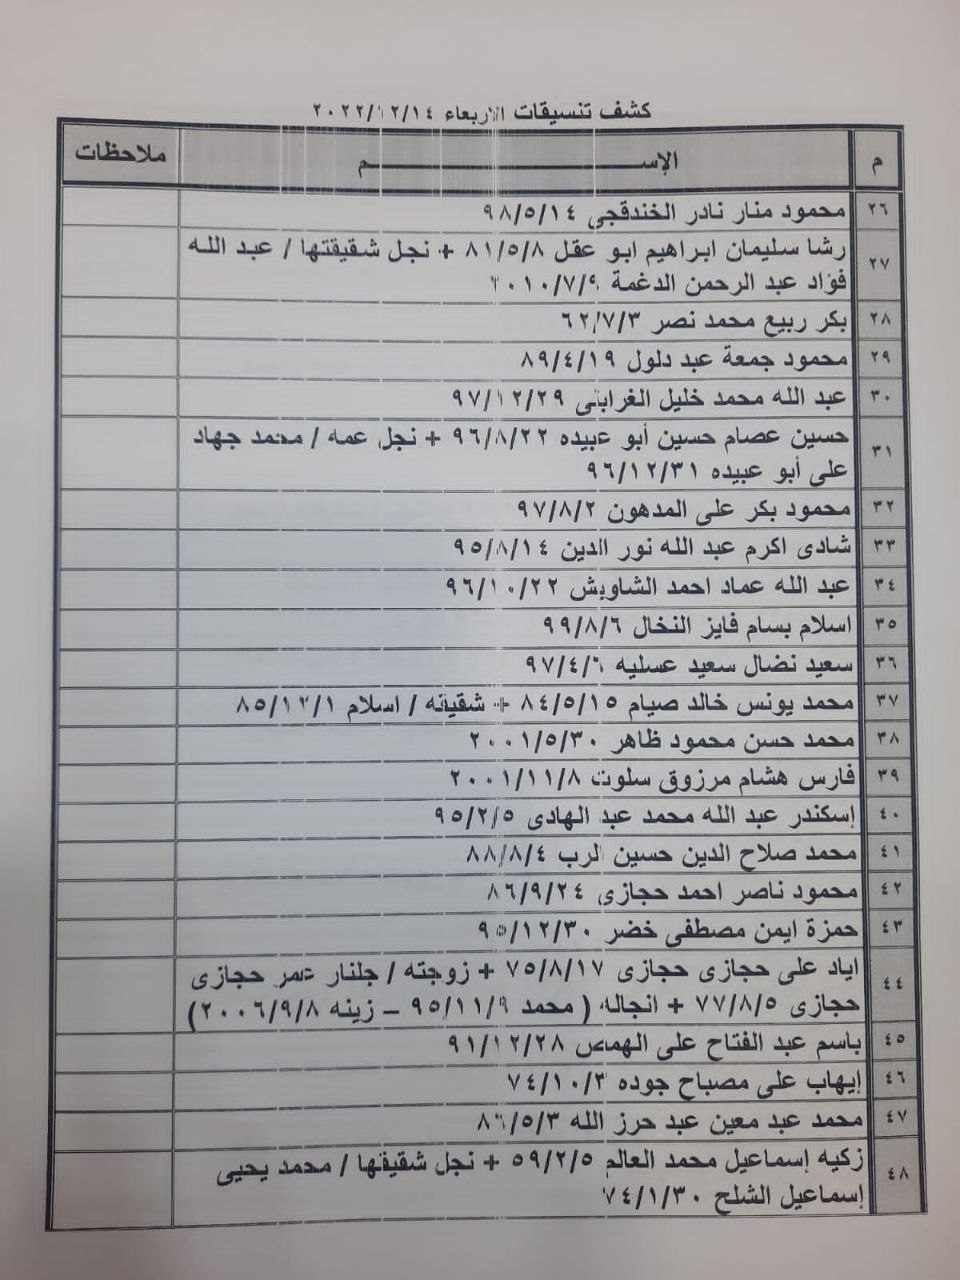 كشف تنسيقات الاربعاء ٢٠٢٢/١٢/١٤
م الإســـم ملاحظات
٢٦ محمود منار نادر الخندقجي ٩٨/٥/١٤
٢٧ رشا سليمان ابراهيم ابو عقل ٨١/٥/٨ + نجل شقيقتها / عبد الله
فؤاد عبد الرحمن الدغمة ٢٠١٠/٧/٩
٢٨ بكر ربيع محمد نصر ٦٢/٧/٣
٢٩ محمود جمعة عبد دلول ٨٩/٤/١٩
٣٠ عبد الله محمد خليل الغرابلى ٩٧/١٢/٢٩
٣١ حسين عصام حسين أبو عبيده ٩٦/٨/٢٢ + نجل عمه / محمد جهاد
على أبو عبيده ٩٦/١٢/٣١
٣٢ محمود بكر على المدهون ٩٧/٨/٢
٣٣ شادى اكرم عبد الله نور الدين ٩٥/٨/١٤
٣٤ عبد الله عماد احمد الشاويش ٩٦/١٠/٢٢
٣٥ اسلام بسام فايز النخال ٩٩/٨/٦
٣٦ سعيد نضال سعيد عسليه ٩٧/٤/٦
٣٧ محمد يونس خالد صيام ٨٤/٥/١٥ + شقيقه / اسلام ٨٥/١٢/١
٣٨ محمد حسن محمود ظاهر ٢٠٠١/٥/٣٠
٣٩ فارس هشام مرزوق سلوت ٢٠٠١/١١/٨
٤٠ إسكندر عبد الله محمد عبد الهادى ٩٥/٢/٥
٤١ محمد صلاح الدين حسين الرب ٨٨/٨/٤
٤٢ محمود ناصر احمد حجازى ٨٦/٩/٢٤
٤٣ حمزة ايمن مصطفى خضر ٩٥/١٢/٣٠
٤٤ اياد على حجازى حجازى ٧٥/٨/١٧ + زوجته / جلنار عمر حجازى
حجازى ٧٧/٨/٥ + انجاله ( محمد ٩٥/١١/٩ – زينه ٢٠٠٦/٩/٨)
٤٥ باسم عبد الفتاح على الهمص ٩١/١٢/٢٨
٤٦ إيهاب على مصباح جوده ٧٤/١٠/٣
٤٧ محمد عبد معين عبد حرز الله ٨٦/٥/٣
٤٨ زكيه إسماعيل محمد العالم ٥٩/٢/٥ + نجل شقيقها / محمد يحيى
إسماعيل الشلح ٧٤/١/٣٠